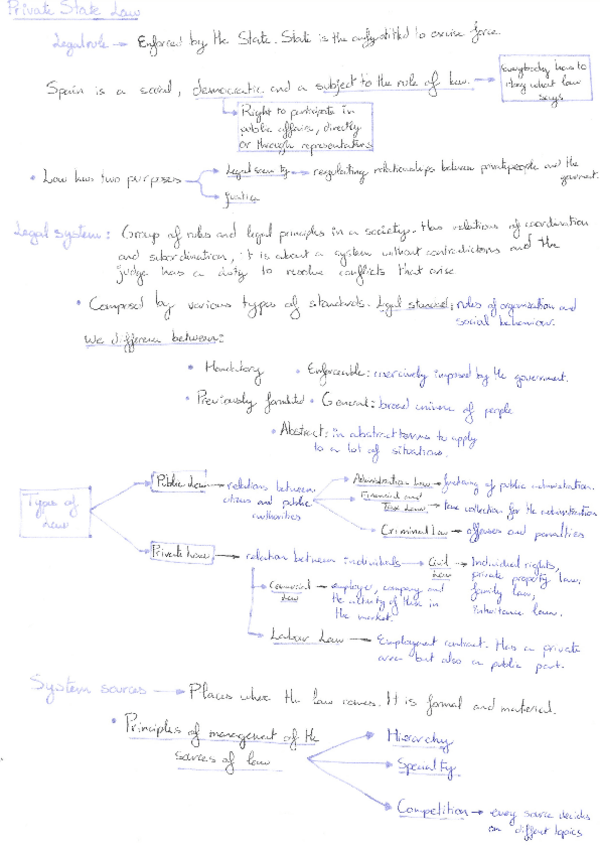 Private State Law
Legal rule → Enforced by the State. State is the only entitled to exercise force.
Spain is a social, democratic and a subject to the rule of law. → everybody has to
obey what law
says
Right to participate in
public affairs, directly
or through representatives
• Law has two purposes → Legal security → regulating relationships between private people and the
goverment.
Justice
Legal system: Group of rules and legal principles in a society. Has relations of coordination
and subordination, it is about a system without contradictions and the
judge has a duty to resolve conflicts that arise
• Composed by various types of standards. Legal standard: rules of organisation and
social behaviour.
We difference between:
• Mandatory • Enforceable: coercively imposed by the government.
• Previously • General: broad universe of people
• Abstract: in abstract terms to apply
to a lot of situations.
Types of
Law
Public Law → relations between
citizens and public
authorities
Administration Law → functioning of public administration.
Financial and
Tax Law → tax collection for the administration
Criminal law → offenses and penalties
Private Law → relation between individuals → Civil
Law → Individual rights,
private property law,
family law,
inheritance law.
Comercial
Law → employer, company and
the activity of them in
the market.
Labor Law → Employment contract. Has a private
area but also a public part.
System sources → Places where the law comes. It is formal and material.
• Principles of management of the
sources of law
Hierarchy
Specialty
Competition → every source decides
on different topics